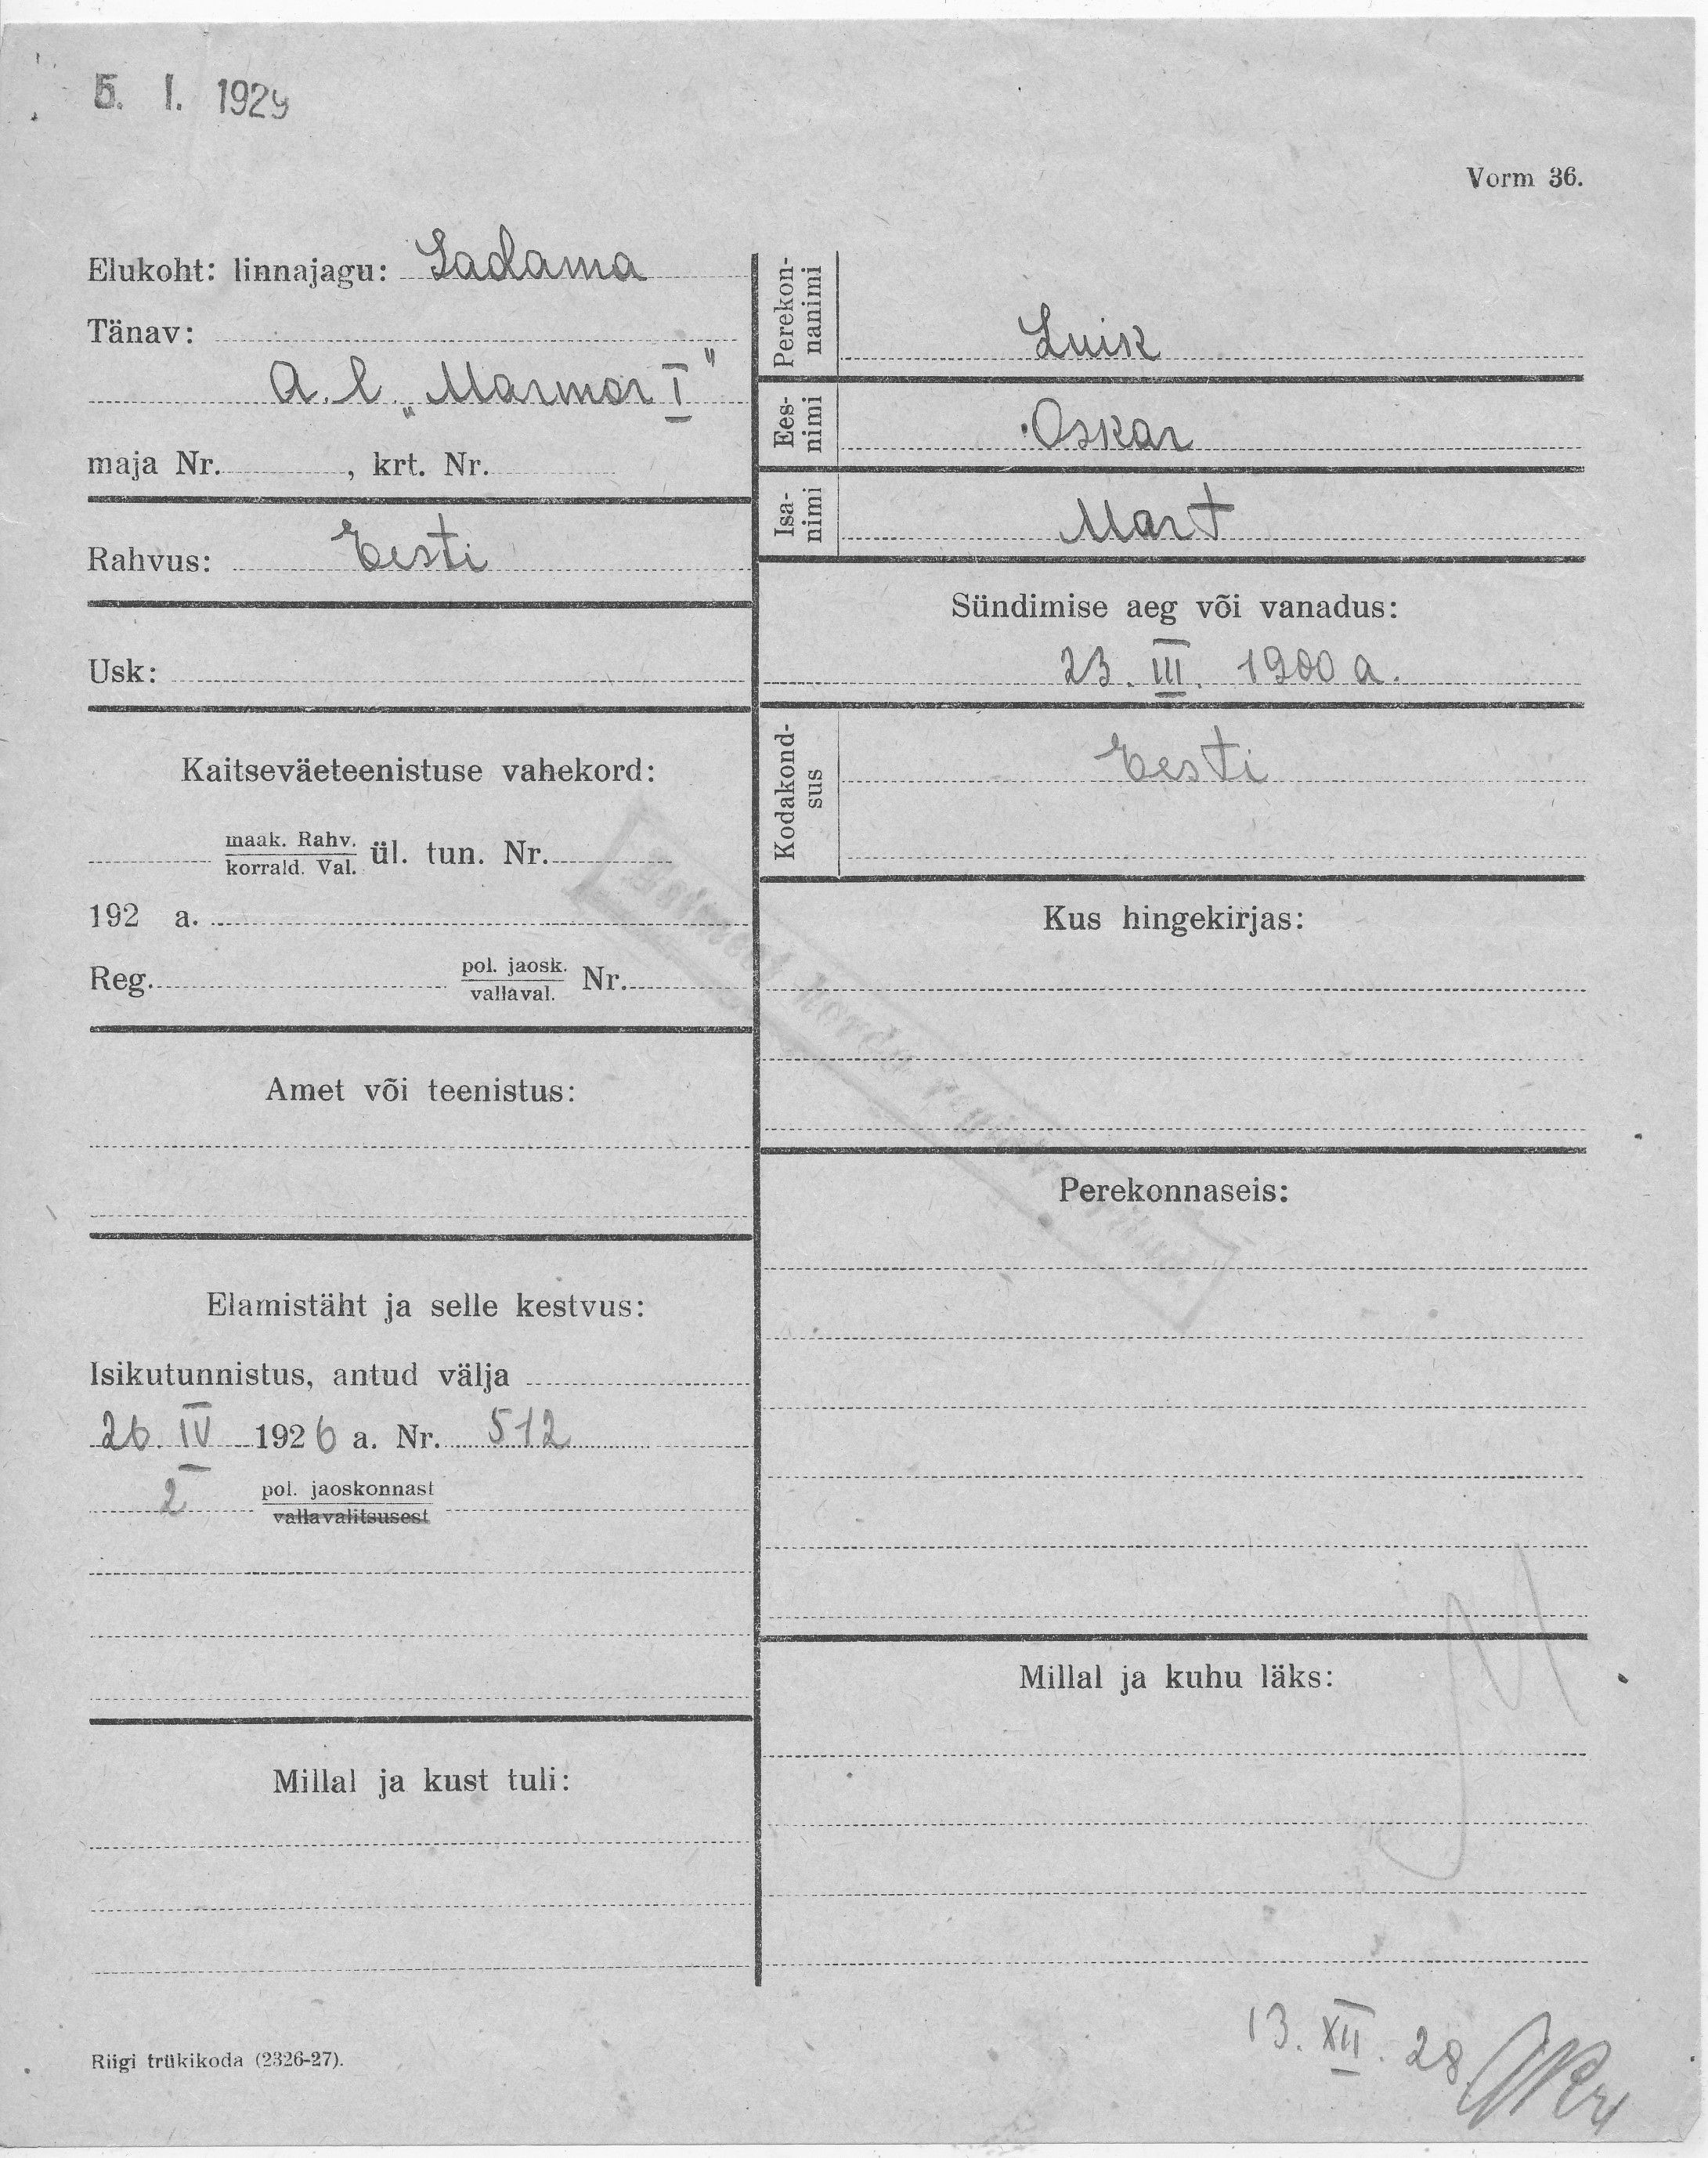 5. I. 1929
Vorm 36.
Elukoht: linnajagu: Sadama
Tänav:
A. l. „Marmor I"
maja Nr. , krt. Nr.
Rahvus: Eesti
Usk:
Kaitseväeteenistuse vahekord:
maak. Rahv.
korrald. Val.
ül. tun. Nr.
192 a.
Reg. pol. jaosk. Nr.
vallaval.
Amet või teenistus:
Elamistäht ja selle kestvus:
Isikutunnistus, antud välja
26. IV 1926 a. Nr. 512
2 pol. jaoskonnast
vallavalitsusest
Millal ja kust tuli:
Riigi trükikoda (2326-27).
Perekon-
nanimi
Luik
Ees-
nimi
Oskar
Isa-
nimi
Mart
Sündimise aeg või vanadus:
23. III. 1900 a.
Kodakond-
sus
Eesti
Kus hingekirjas:
Perekonnaseis:
Millal ja kuhu läks:
13. XII. 28